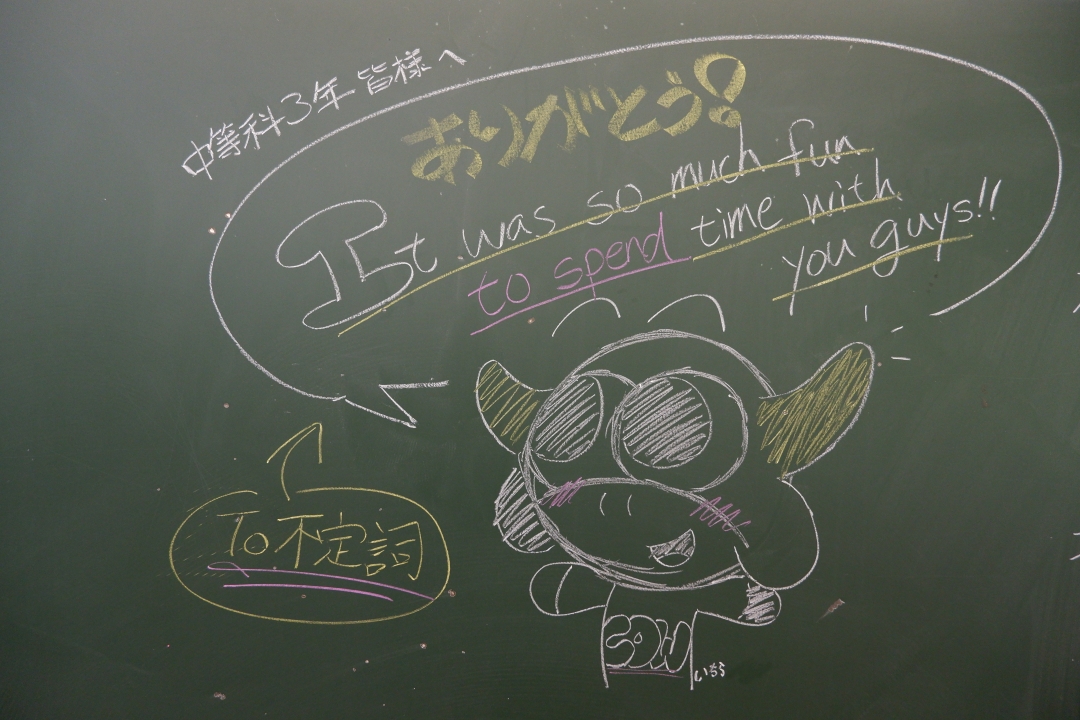 中等科3年 皆様へ
ありがとう!
It was so much fun
to spend time with
you guys!!
To不定詞
いちろ